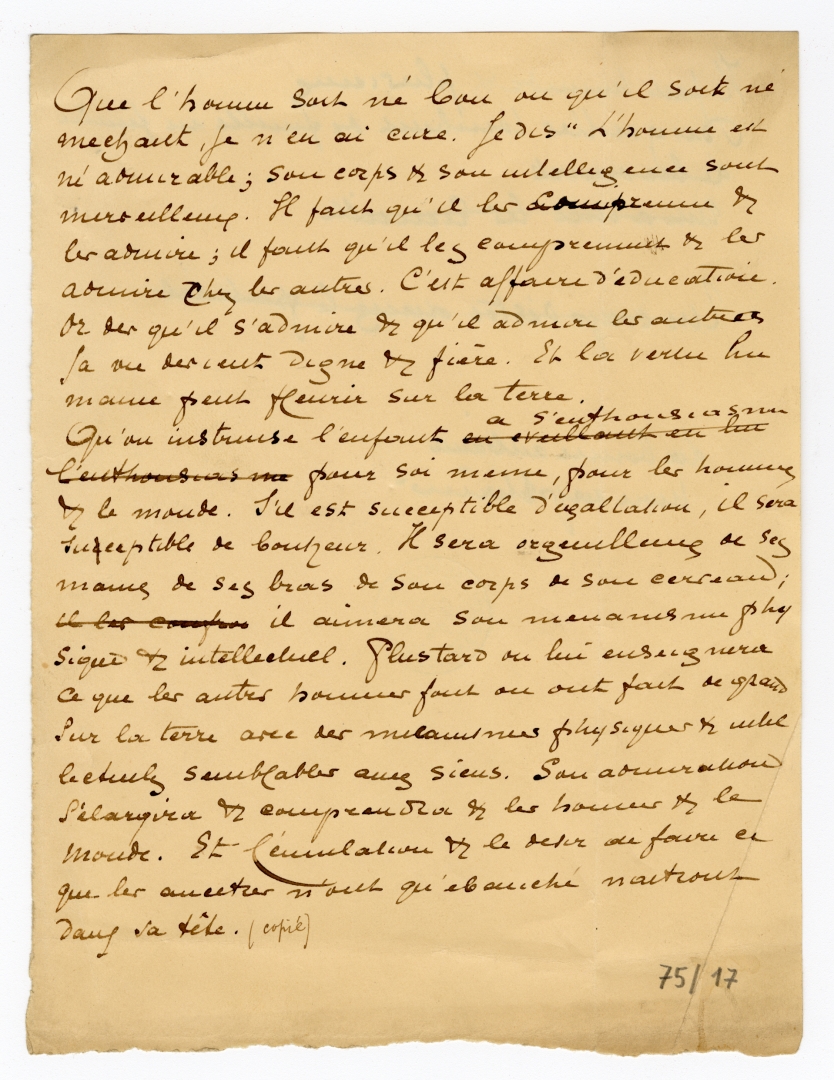 Que l'homme soit né bon ou qu'il soit né
mechant, je n'en ai cure. Je dis " L'homme est
né admirable; son corps & son intelligence sont
merveilleux. Il faut qu'il les comprenne &
les admire; il faut qu'il les comprennent & les
admire chez les autres. C'est affaire d'éducation.
Or des qu'il s'admire & qu'il admire les autres
sa vie devient digne & fière. Et la vertu hu
maine peut fleurir sur la terre.
a s'enthousiasme
Qu'on instruise l'enfant en eveillant en lui
l'enthousiasme pour soi meme, pour les hommes
& le monde. S'il est succeptible d'exaltation, il sera
susceptible de bonheur. Il sera orgueilleux de ses
mains de ses bras de son corps de son cerveau;
il les il aimera son mecanisme phy
sique & intellectuel. Plustard on lui enseignera
ce que les autres hommes font ou ont fait de grand
sur la terre avec des mecanismes physiques & intel
lectuels semblables aux siens. Son admiration
s'élargira & comprendra & les hommes & le
monde. Et l'émulation & le desir de faire ce
que les ancetres n'ont qu'ebauché naitront
dans sa tête. (copié)
75/17